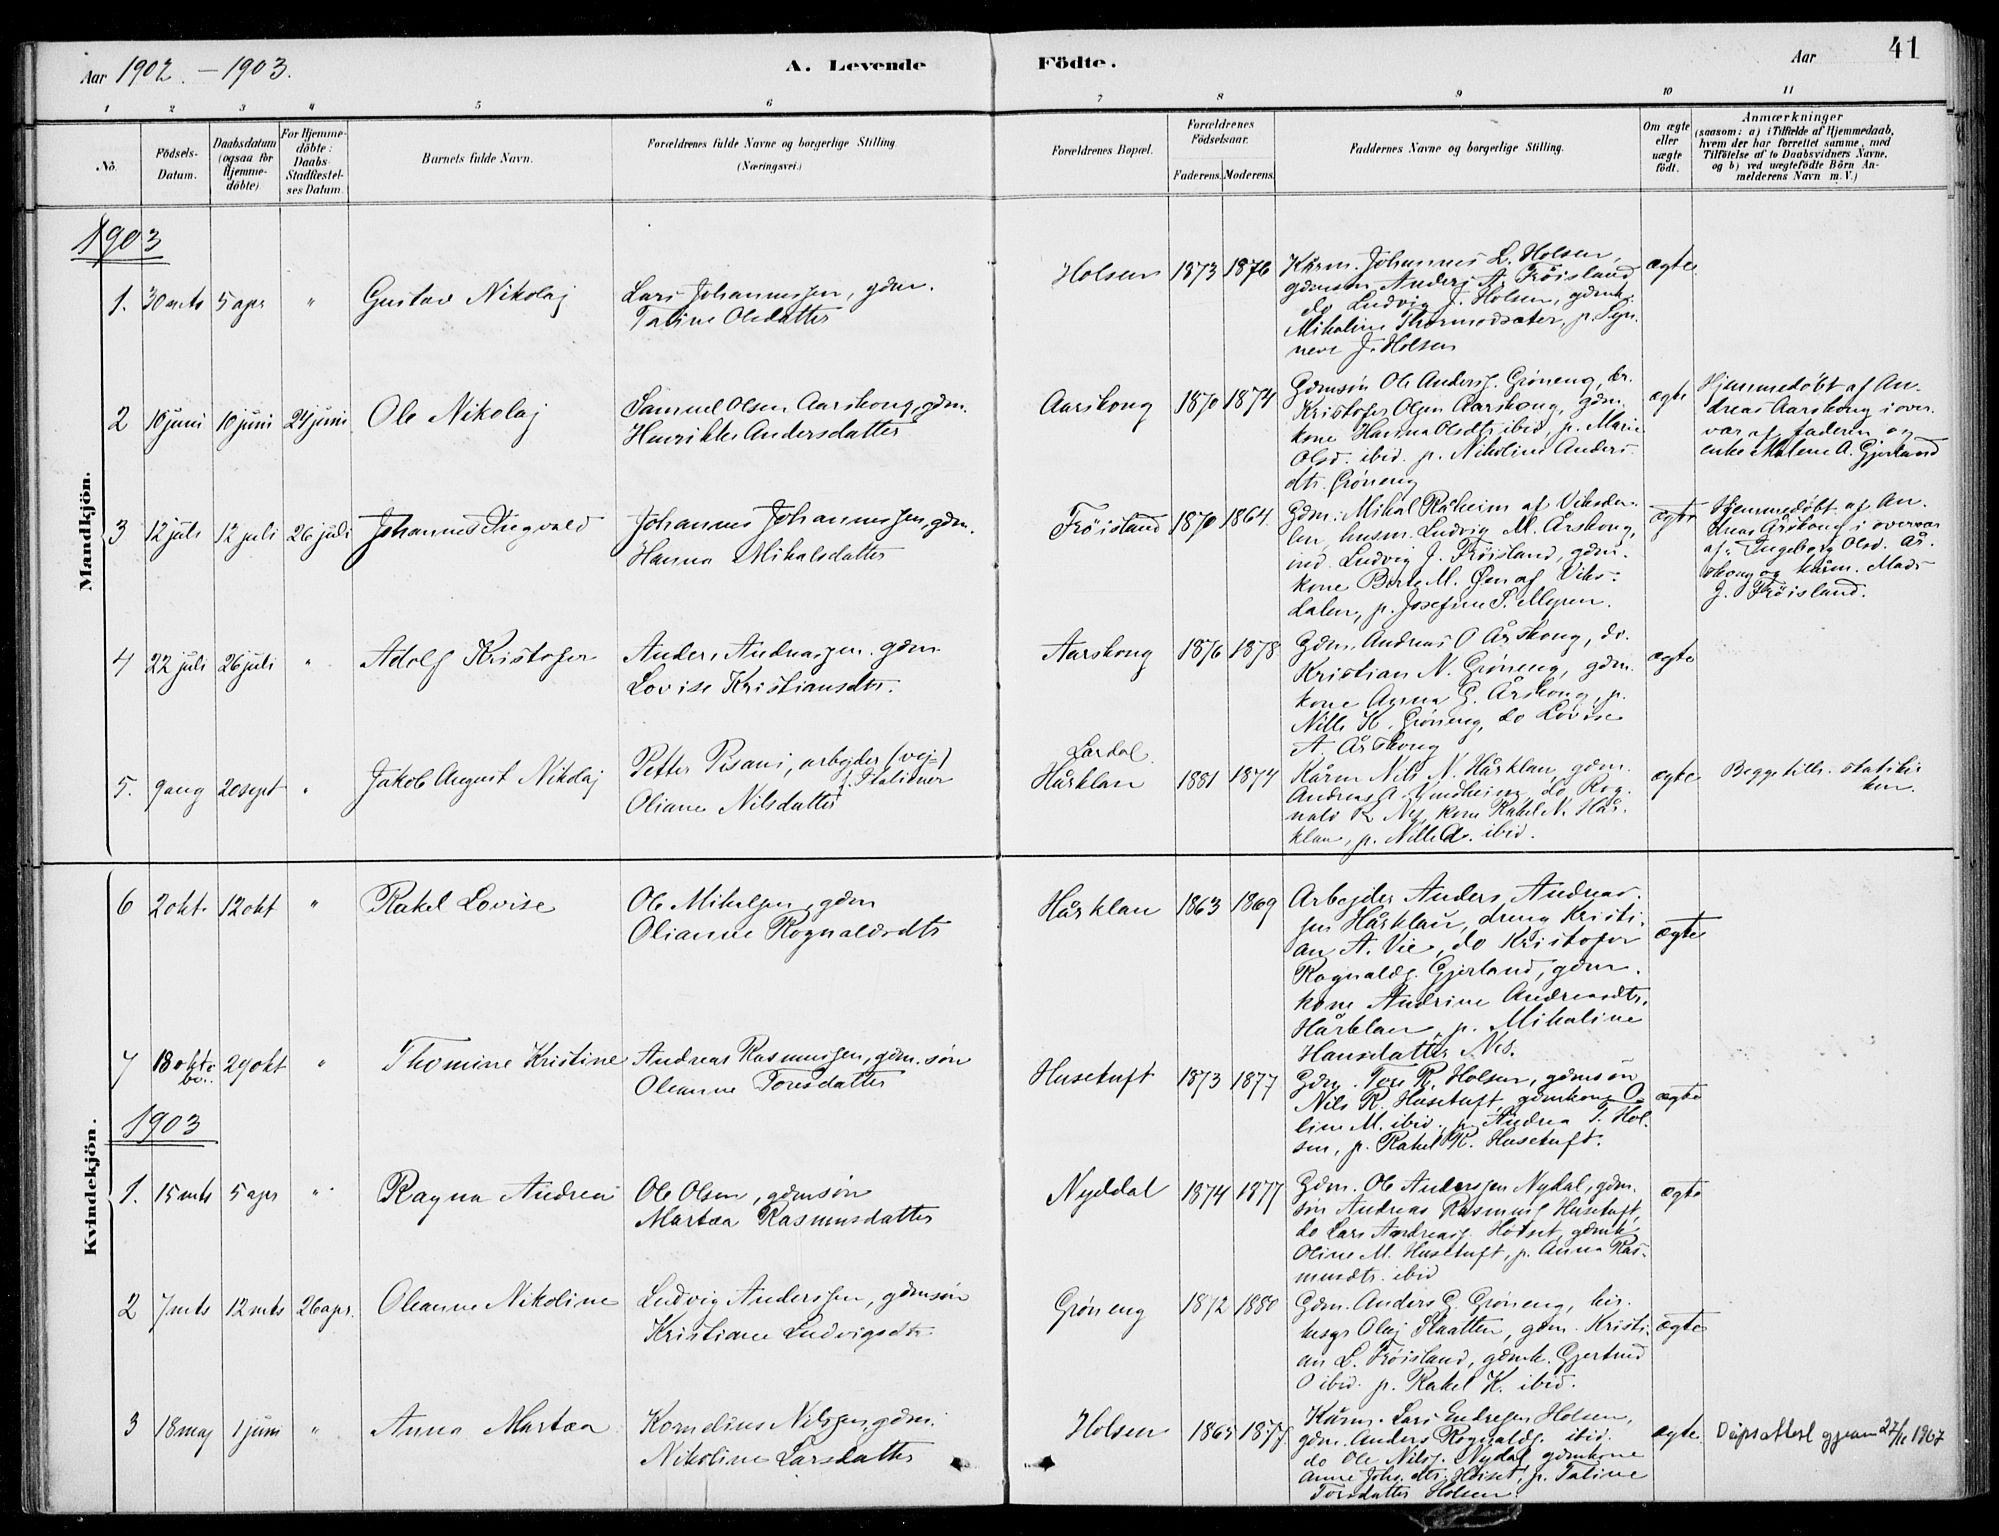 Aar 1902. – 1903.
A. Levende Födte.
Aar
41
1 2 3 4 5 6 7 8 9 10 11
No.
Födsels-
Datum.
Daabsdatum
(ogsaa for
Hjemme-
döbte)
For Hjemme-
döbte:
Daabs-
Stadfæstel-
ses Datum.
Barnets fulde Navn.
Forældrenes fulde Navne og borgerlige Stilling.
(Næringsvei.)
Forældrenes Bopæl.
Forældrenes
Födselsaar.
Faderens. Moderens.
Faddernes Navne og borgerlige Stilling.
Om ægte
eller
uægte
födt.
Anmærkninger
(saasom: a) i Tilfælde af Hjemmedaab,
hvem der har forrettet samme, med
Tilföielse af to Daabsvidners Navne,
og b) ved uægtefödte Börn An-
melderens Navn m. V.)
Mandkjön.
1903
1. 30 mts 5 apr " Gustav Nikolaj
Lars Johannessen, gdm.
Taline Olsdatter
Holsen 1873 1876
Kårm. Johannes L. Holsen,
gdmsøn Anders A. Frøisland
do Ludvig J. Holsen, gdmk.
Mikaline Thormodsæter, p. Syn-
neve J. Holsen
ægte
2 10 juni 10 juni 24 juni Ole Nikolaj
Samuel Olsen Aarskong, gdm.
Henrikke Andersdatter
Aarskong 1870 1874
Gdmsøn Ole Anders. Grøneng, do.
Kristofer Olsen Aarskong, gdm.
kone Hanna Olsdtr ibid, p. Marie
Olsd. ibid. p. Nikoline Anders-
dtr. Grøneng
ægte
Hjemmedøbt af An-
dreas Aarskong i over-
vær af faderen og
enke Malene A. Gjerland
3 12 juli 12 juli 26 juli Johannes Ingvald
Johannes Johannessen, gdm.
Hanna Mikalsdatter
Frøisland 1870 1864.
Gdm. Mikal Råheim af Viksda-
len, husm. Ludvig M. Årskong,
ind. Ludvig J. Frøisland, gdm.
kone Berte M. Øen af Viks-
dalen, p. Josefine S. Myren.
ægte
Hjemmedøbt af An-
dreas Årskong i overvær
af: Ingeborg Olsd. År-
skong og kårm. Mads
J. Frøisland.
4 22 juli 26 juli " Adolf Kristofer
Anders Andreassen. gdm
Lovise Kristiansdtr.
Aarskong 1876 1878
Gdm. Andreas O Årskong, do.
Kristian N. Grøneng, gdm.
kone Anna G. Årskong, p.
Nille K. Grøneng, do Lovise
A. Årskong
ægte
5. 9 aug 20 sept " Jakob August Nikolaj
Petter Pisani, arbejder (vej-)
f. Italiener
Oliane Nilsdatter
Lærdal.
Hårklau 1881 1874
Kårm Nils N. Hårklau, gdm.
Andreas A. do Rog-
nald R Nes, kone Rakel N. Hår-
klau, p. Nille A. ibid.
ægte
Begge tilh. statskir
ken.
Kvindekjön.
6 2 okt. 12 okt " Rakel Lovise
Ole Mikalsen, gdm
Olianne Rognaldsdtr
Hårklau 1863 1869
Arbejder Anders Andreas-
sen Hårklau, dreng Kristi-
an A. Vie, do Kristofer
Rognalds. Gjerland, gdm.
kone Andrine Andreasdtr.
Hårklau, p. Mikaline
Hansdatter Nes.
ægte
7 18 okto
ber. 29 okt " Thomine Kristine
Andreas Rasmussen, gdm. søn
Oleanne Toresdatter
Husetuft 1873 1877
Gdm. Tore R. Holsen, gdmsøn
Nils R. Husetuft gdmkone O-
line M. ibid. p. Andrea T. Hol-
sen, p. Rakel R. Husetuft.
ægte
1903
1. 15 mts 5 apr " Ragna Andrea
Ole Olsen, gdmsøn
Martea Rasmusdatter
Nyddal 1874 1877
Gdm. Ole Anderssen Nydal, gdm.
søn Andreas Rasmuss Husetuft,
do Lars Andreas. Høiset, gdmk.
Oline M. Husetuft, p. Anna Ras-
musdtr. ibid
ægte
2 7 mts 12 mts 26 apr. Oleanne Nikoline
Ludvig Anderssen, gdmsøn
Kristiane Ludvigsdtr.
Grøneng 1872 1880
Gdm. Anders G. Grøneng, kir-
kesgr Olaj Slaatten, gdm. Kristi-
an L. Frøisland, gdmk. Gjertrud
O ibid. p. Rakel K. ibid.
ægte
3 18 maj 1 juni " Anna Martea
Kornelius Nilssen, gdm.
Nikoline Larsdatter
Holsen 1865 1877.
Kårm. Lars Endresen Holsen,
gdm. Anders Rognalds. ibid.
do Ole Nilss. Nydal gdmkone
Anne Johs. dtr. Høiset, p. Taline
Toresdatter Holsen.
ægte
Dåpsattest gjenn 27/11 1967